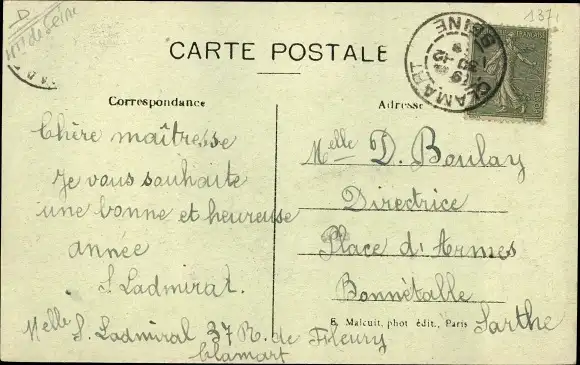 D
Hts de Seine
1371
CARTE POSTALE
CLAMART
SEINE
30-12
19
Correspondance
Adresse
Chère maîtresse
Je vous souhaite
une bonne et heureuse
année
S. Ladmiral.
Melle S. Ladmiral 37 R. de Fleury
Clamart
Melle D. Boulay
Directrice
Place d'Armes
Bonnétable
Sarthe
E. Malcuit, phot édit., Paris